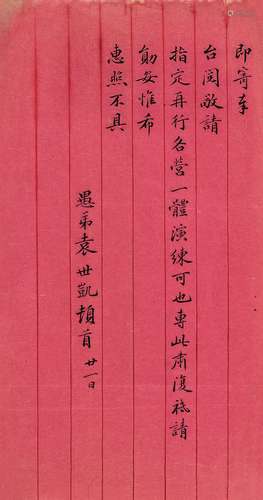 即寄奉
台閱敬請
指定再行各營一體演練可也專此肅復祗請
勛安惟希
惠照不具
愚弟袁世凱頓首 廿一日